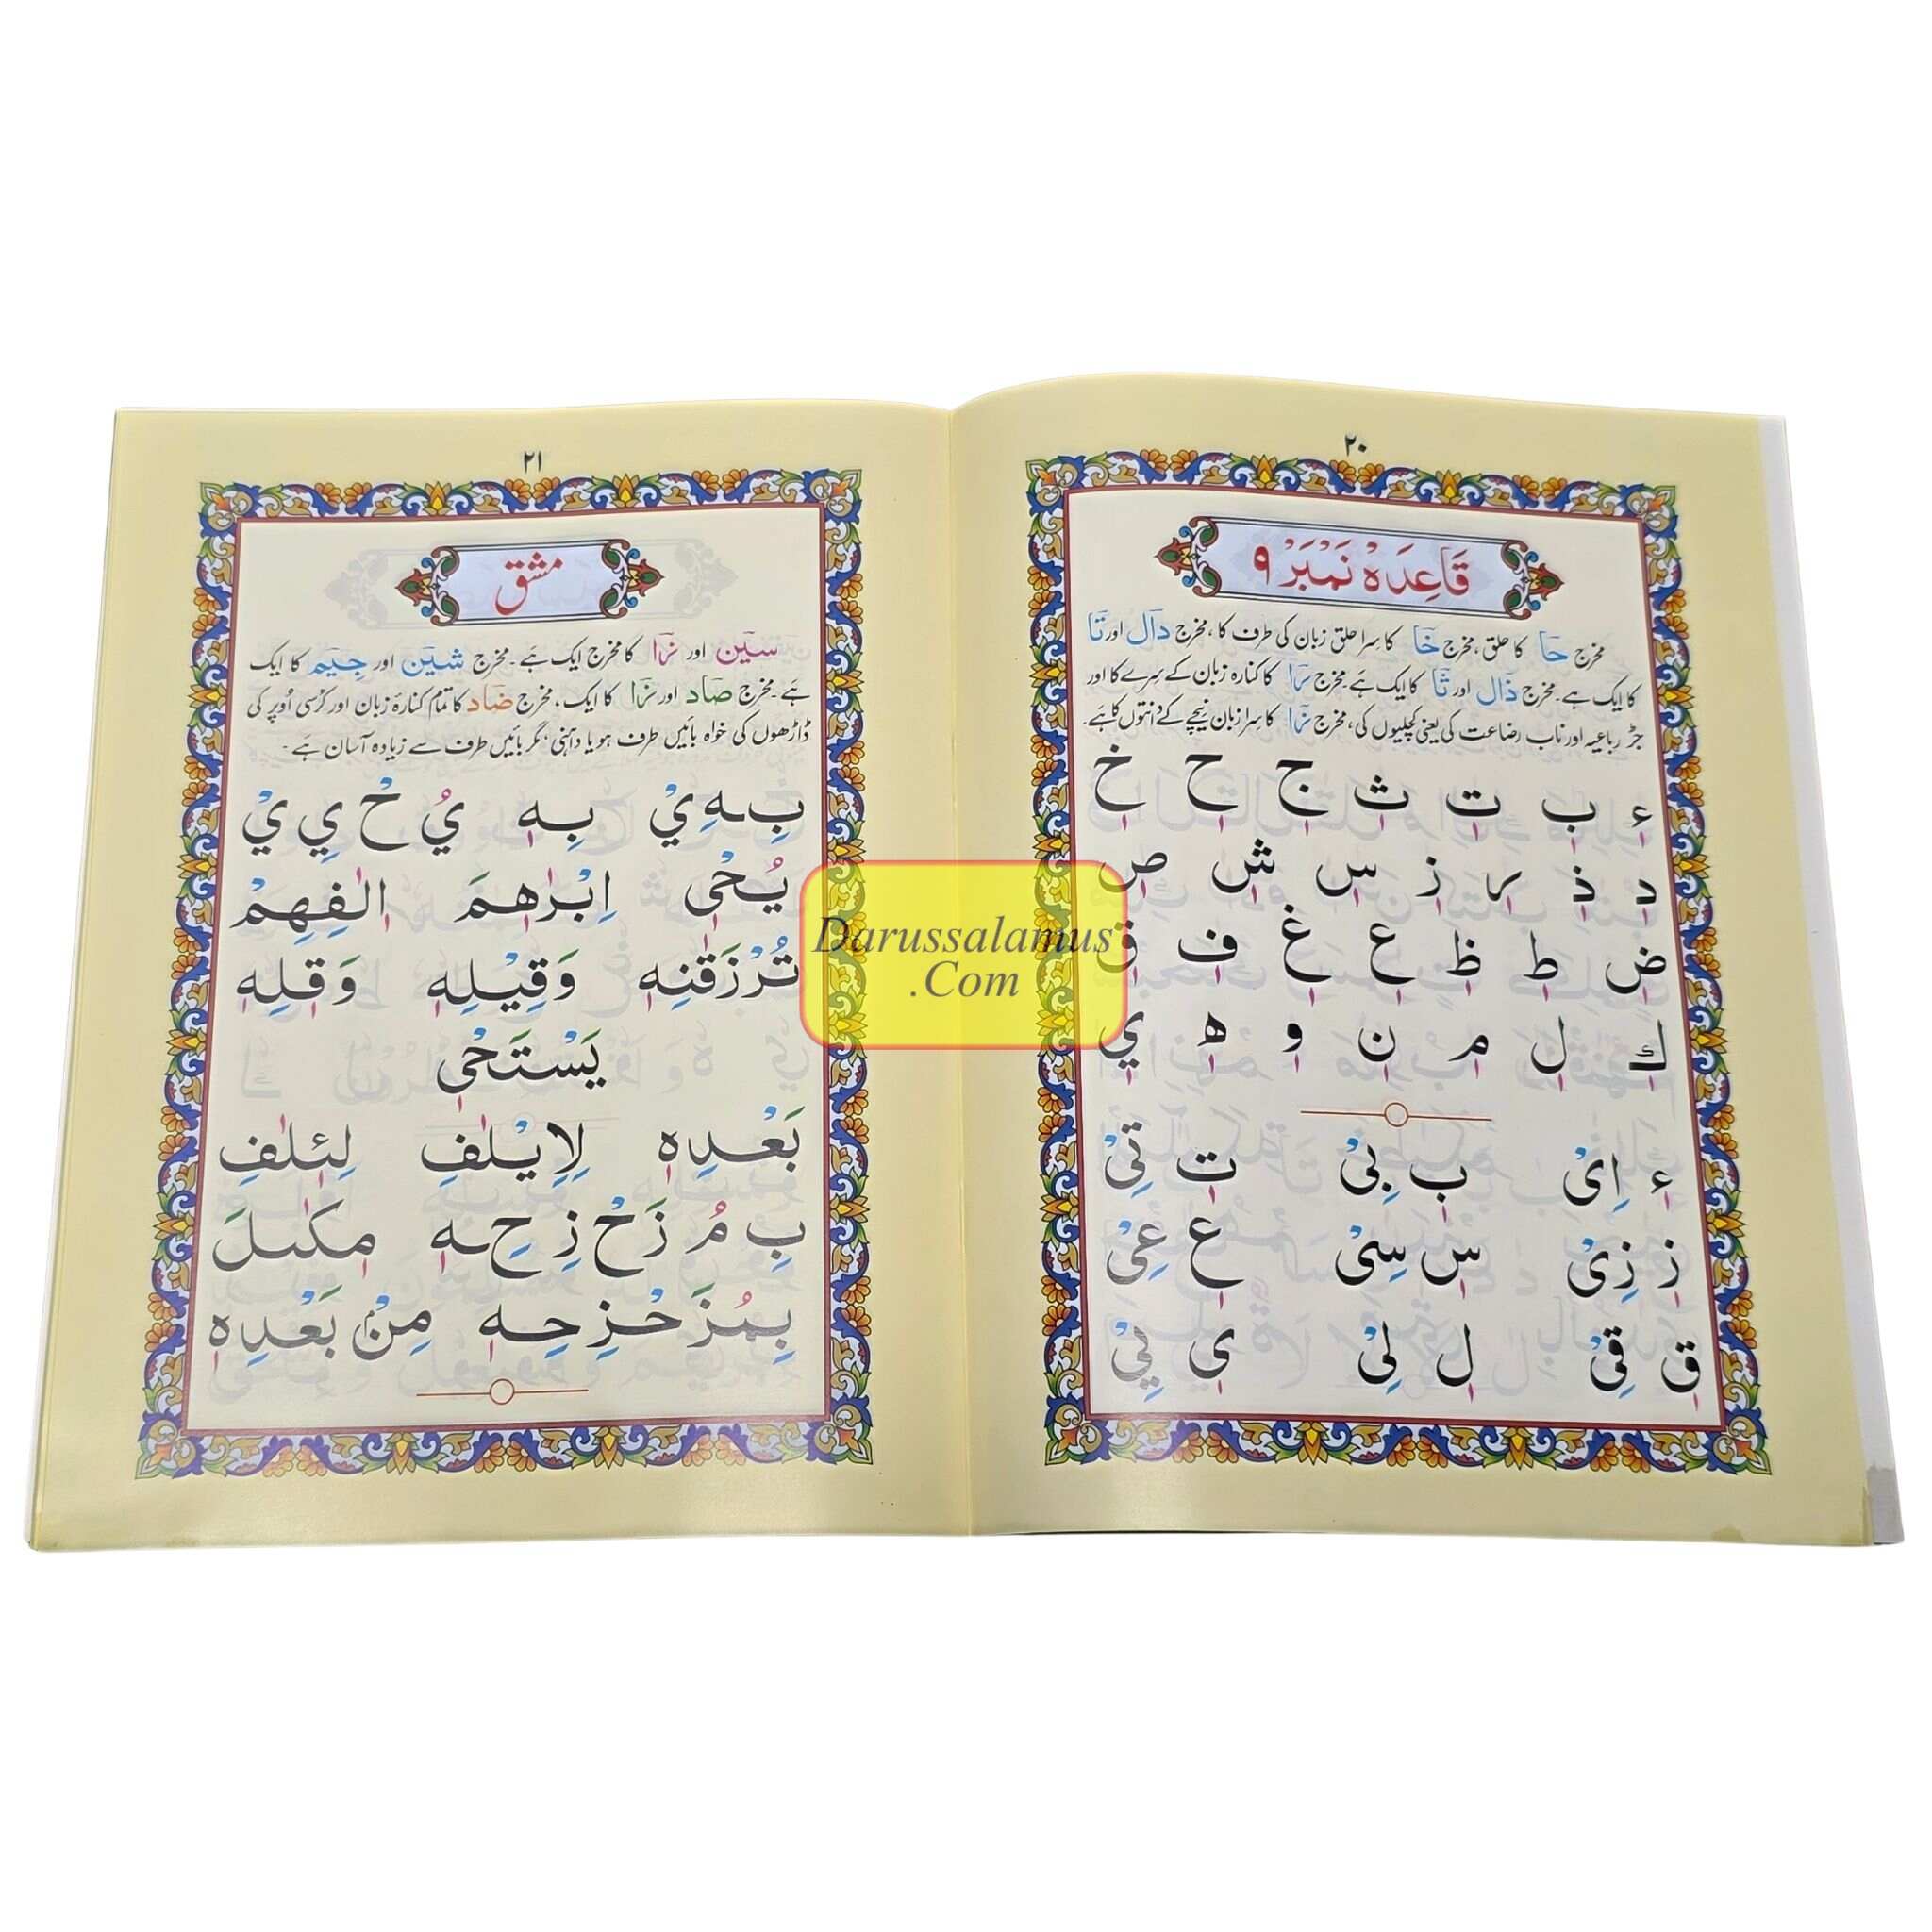 ٢٠
قَاعِدَہْ نَمْبَرْ ٩
مخرج حَا کا حلق، مخرج خَا کا سِرا حلق زبان کی طرف کا، مخرج دَال اور تَا
کا ایک ہے۔ مخرج ذَال اور ثَا کا ایک ہے۔ مخرج رَا کا کنارہ زبان کے سِرے کا اور
جڑ رباعیہ اور ناب رضاعت کی یعنی کچلیوں کی، مخرج زَا کا سِرا زبان نیچے کے دانتوں کا ہے۔
ءٖ بٖ تٖ ثٖ جٖ حٖ خٖ
دٖ ذٖ رٖ زٖ سٖ شٖ صٖ
ضٖ طٖ ظٖ عٖ غٖ فٖ قٖ
كٖ لٖ مٖ نٖ وٖ هٖ يٖ
ءٖ اِیْ بٖ بِیْ تٖ تِیْ
زٖ زِیْ سٖ سِیْ عٖ عِیْ
قٖ قِیْ لٖ لِیْ یٖ یِیْ
٢١
مشق
سِیَن اور زَا کا مخرج ایک ہے۔ مخرج شِیَن اور جِیَم کا ایک
ہے۔ مخرج صَاد اور زَا کا ایک، مخرج ضَاد کا تمام کنارۂ زبان اور کرسی اُوپر کی
ڈاڑھوں کی خواہ بائیں طرف ہو یا داہنی، مگر بائیں طرف سے زیادہ آسان ہے۔
بِهِيْ بِهٖ يُحْيِيْ
يُحْیٖ اِبْرٰهٖمَ اٖلٰفِهِمْ
تُرْزَقٰنِهٖ وَقِيْلِهٖ وَقٖلِهٖ
يَسْتَحْیٖ
بَعْدِهٖ لِاِيْلٰفِ لِئٖلٰفِ
بِمُزَحْزِحِهٖ مٖكٰىلَ
بِمُزَحْزِحِهٖ مِنْۢ بَعْدِهٖ
Darussalamus
.Com